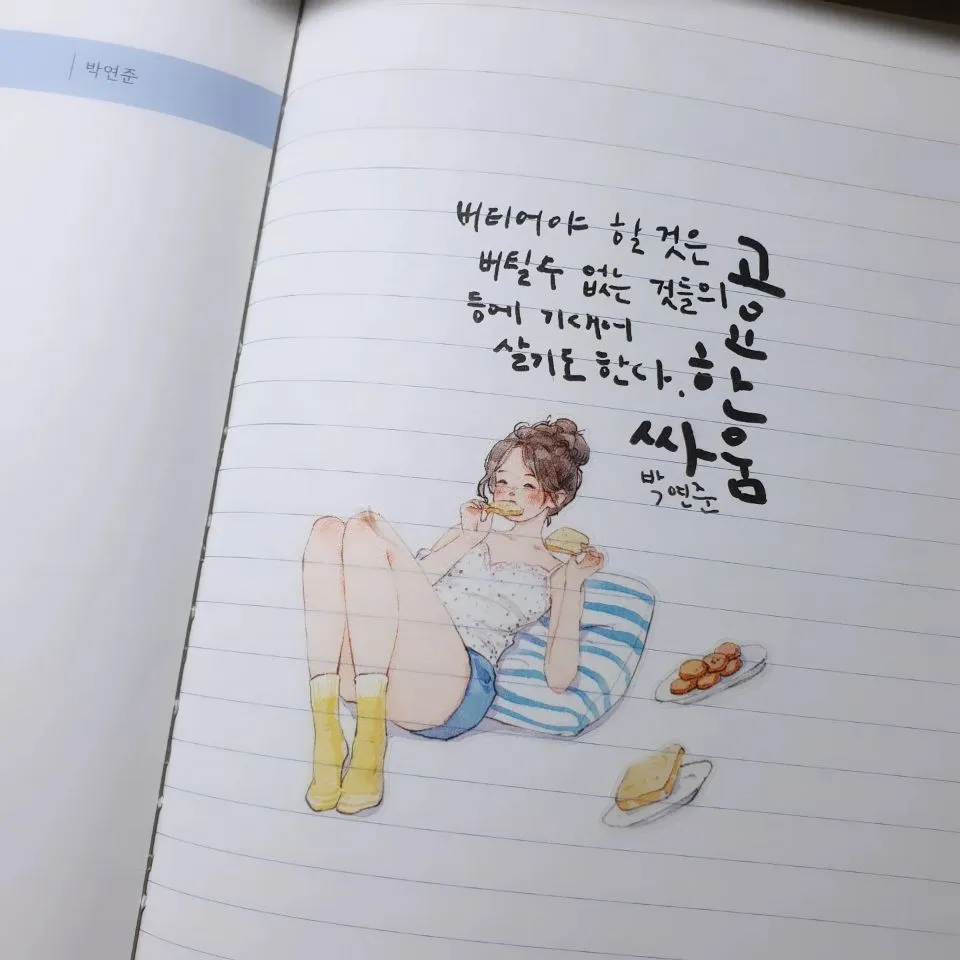 박연준
버티어야 할 것은
버틸 수 없는 것들의
등에 기대어
살기도 한다.
고요한
싸움
박연준